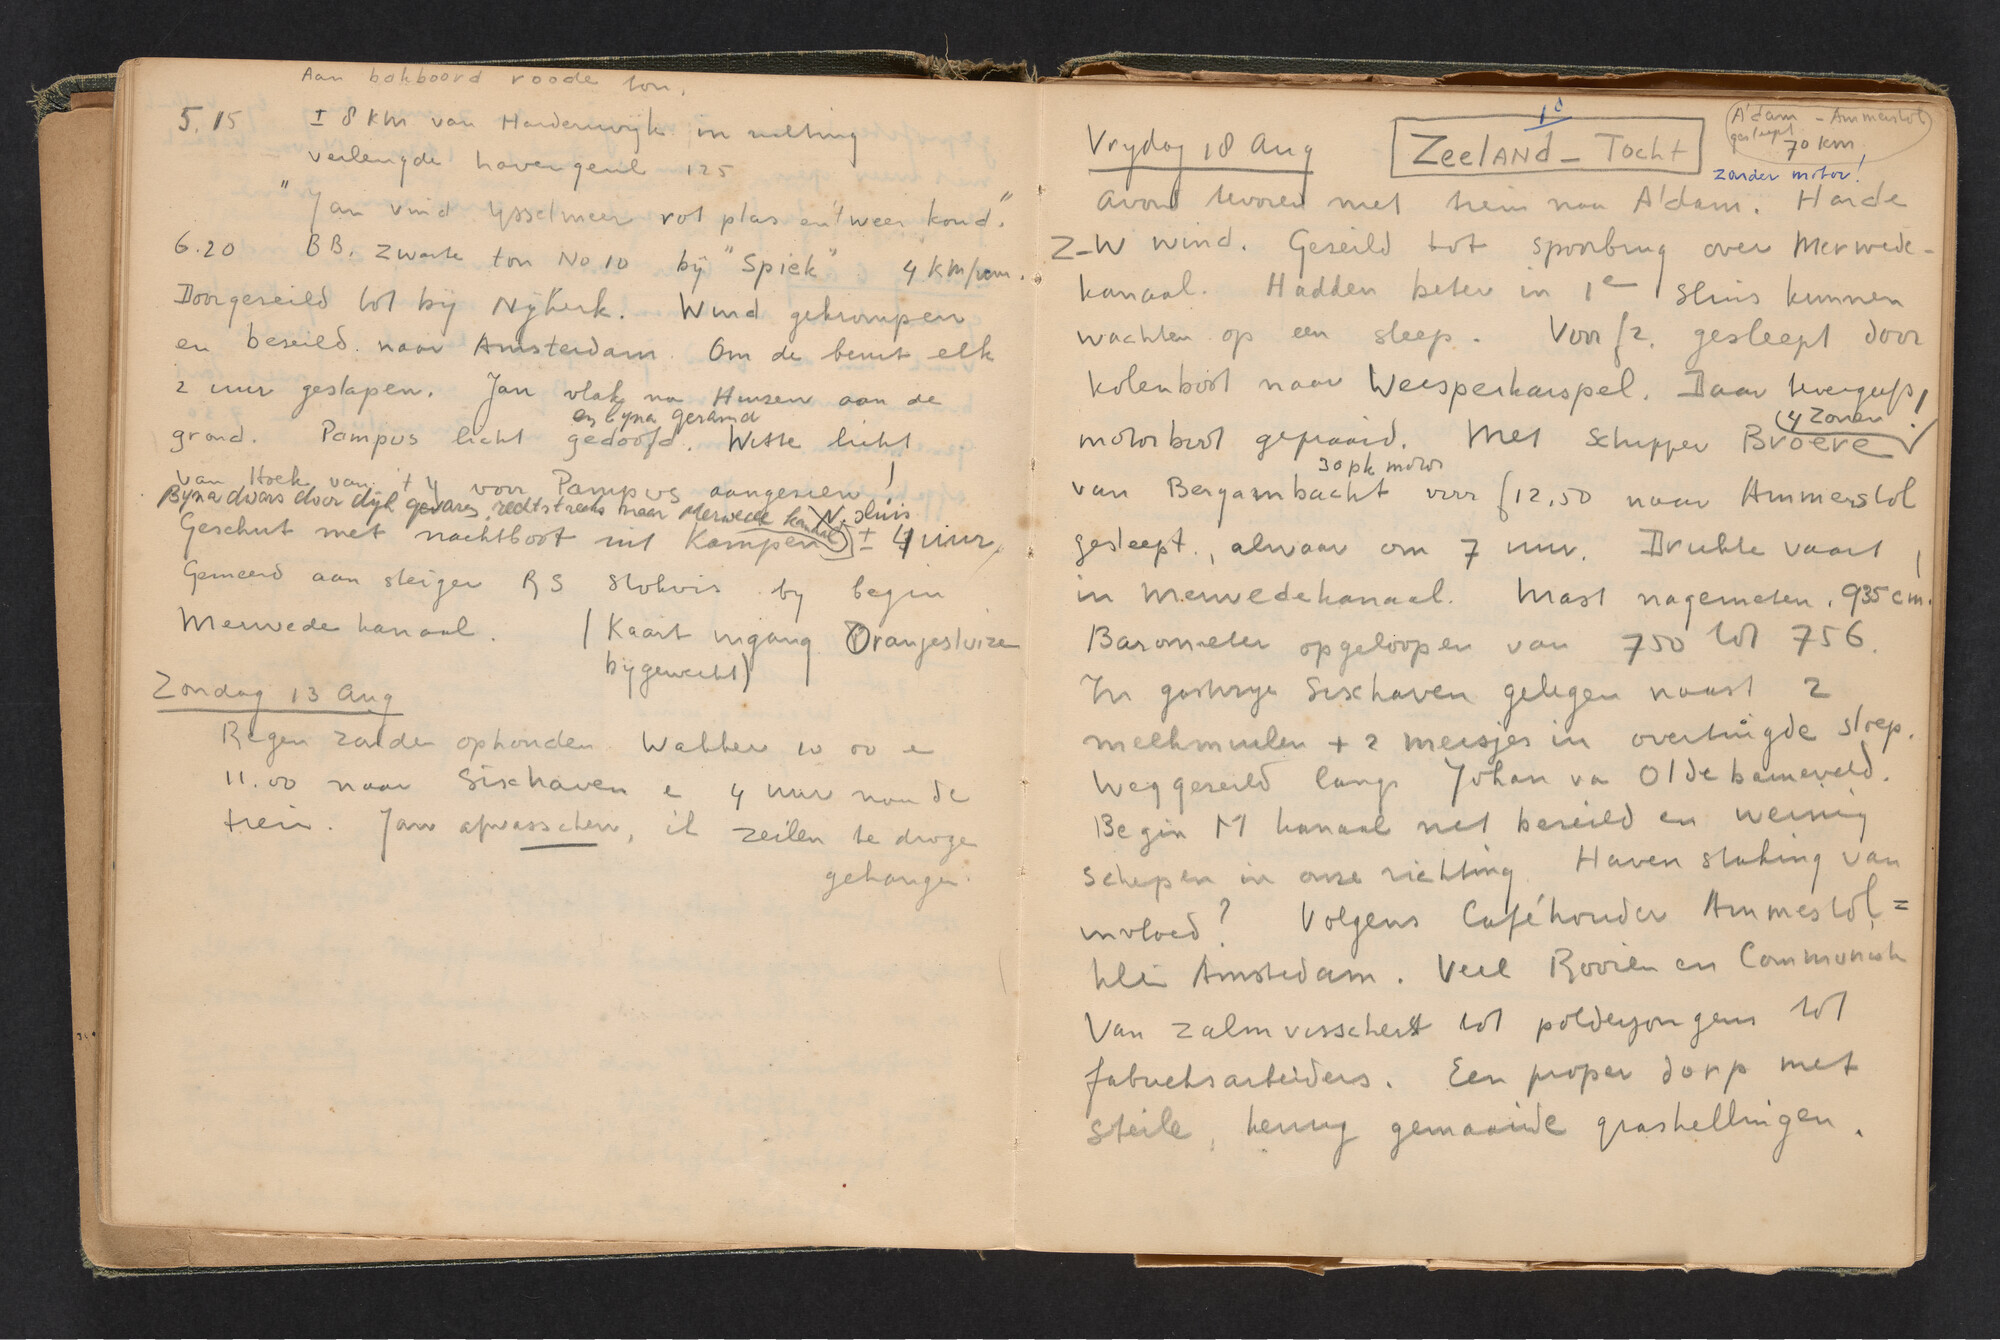 Aan bakboord roode ton.
5.15 ± 8 km van Harderwijk in richting
verlengde havengeul 125
"Jan vind Ysselmeer rot plas en 't weer koud".
6.20 BB. zwarte ton No 10 bij "Spiek" 4 km/
Doorgezeild tot bij Nijkerk. Wind gekrompen
en bezeild naar Amsterdam. Om de beurt elk
2 uur geslapen. Jan vlak na Huizen aan de
en byna geramd
grond. Pampus licht gedoofd. Witte licht
van Hoek van 't Y voor Pampus aangezien!
Byna dwars door dijk gevaren, rechtstreeks naar Merwede kanaal N. sluis
Geschut met nachtboot uit Kampen ± 4 uur
Gemeerd aan steiger RS Stokvis by begin
Merwede kanaal. (Kaart ingang Oranjesluize
bijgewerkt)
Zondag 13 Aug
Regen zonder ophouden. Wakker 10 00 e
11.00 naar Sixhaven e 4 uur non de
trein. Jan afwasschen, ik zeilen te droge
gehangen.
1e
Vrydag 18 Aug Zeeland – Tocht
A'dam – Ammerstol
gesleept 70 km
zonder motor!
Avond tevoren met trein naa A'dam. Harde
Z–W wind. Gezeild tot spoorbrug over Merwede-
kanaal. Hadden beter in 1e sluis kunnen
wachten op een sleep. Voor f 2. gesleept door
kolenboot naar Weesperkarspel. Daar tevergeefs!
(4 Zonen)
motorboot gepraaid. Met schipper Broere
30 pk motor
van Bergambacht voor f 12,50 naar Ammerstol
gesleept., alwaar om 7 uur. Drukke vaart!
in Merwedekanaal. Mast nagemeten. 935 cm.
Barometer opgeloopen van 750 tot 756.
In gastvrye Sixhaven gelegen naast 2
melkmuilen + 2 meisjes in overtuigde sloep.
Weggezeild langs Johan va Oldebarneveld.
Begin M kanaal net bezeild en weinig
schepen in onze richting Haven staking van
invloed? Volgens Caféhouder Ammerstol =
klei Amstedam. Veel Rooien en Communist
Van zalmvisschers tot polderjongens tot
fabrieksarbeiders. Een proper dorp met
steile, keurig gemaaide grashellingen.